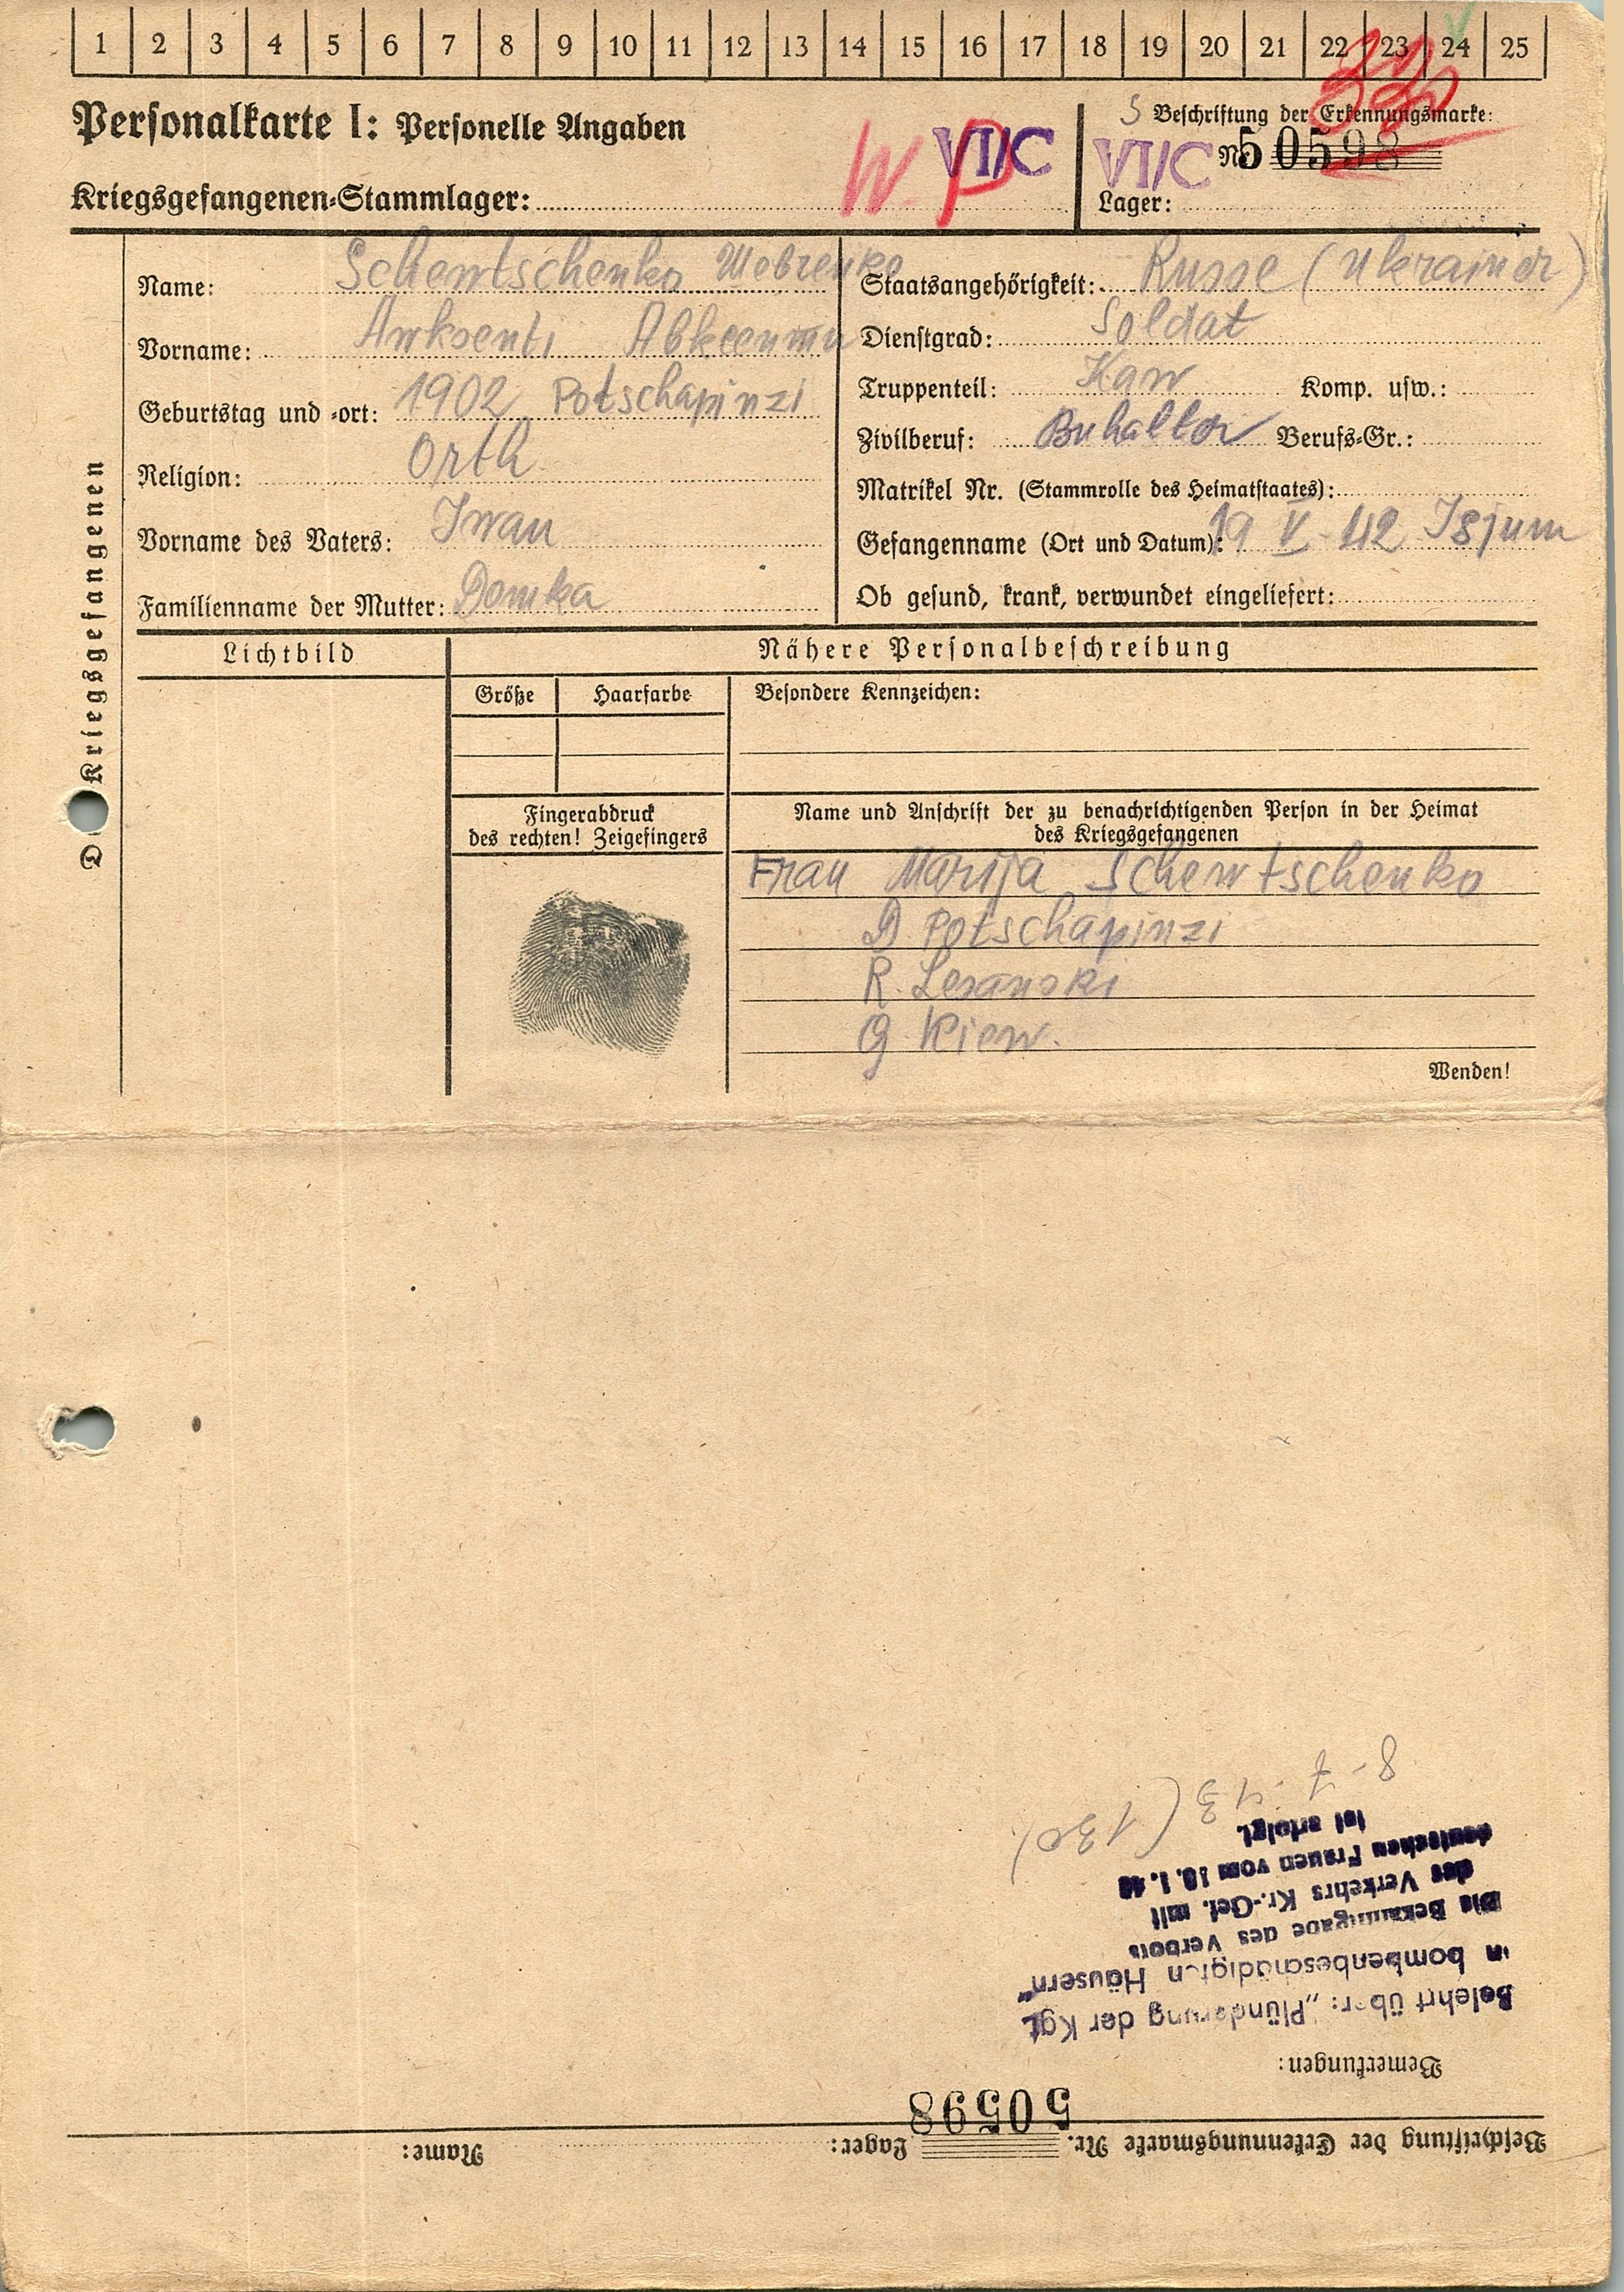 1 2 3 4 5 6 7 8 9 10 11 12 13 14 15 16 17 18 19 20 21 22 23 24 25
Personalkarte I: Personelle Angaben
Kriegsgefangenen-Stammlager:
W P VI/C
5 Beschriftung der Erkennungsmarke:
VI/C Nr. 50598
Lager:
Des Kriegsgefangenen
Name: Schewtschenko Шевченко
Vorname: Awksenti Авксенти
Geburtstag und -ort: 1902 Potschapinzi
Religion: Orth
Vorname des Vaters: Iwan
Familienname der Mutter: Domka
Staatsangehörigkeit: Russe (Ukrainer)
Dienstgrad: Soldat
Truppenteil: Kaw Komp. usw.:
Zivilberuf: Buhalter Berufs-Gr.:
Matrikel Nr. (Stammrolle des Heimatstaates):
Gefangenname (Ort und Datum): 19 V. 42 Isjum
Ob gesund, krank, verwundet eingeliefert:
Lichtbild
Nähere Personalbeschreibung
Größe Haarfarbe
Besondere Kennzeichen:
Fingerabdruck
des rechten! Zeigefingers
Name und Anschrift der zu benachrichtigenden Person in der Heimat
des Kriegsgefangenen
Frau Marija Schewtschenko
D Potschapinzi
R. Lesanski
G Kiew.
Wenden!
Beschriftung der Erkennungsmarke Nr. 50598 Lager: Name:
Bemerkungen:
Belehrt über: „Plünderung der Kgf.
in bombenbeschädigten Häusern"
Die Bekanntgabe des Verbots
des Verkehrs Kr.-Gef. mit
deutschen Frauen vom 10.1.43
ist erfolgt.
8-7-43 (130)